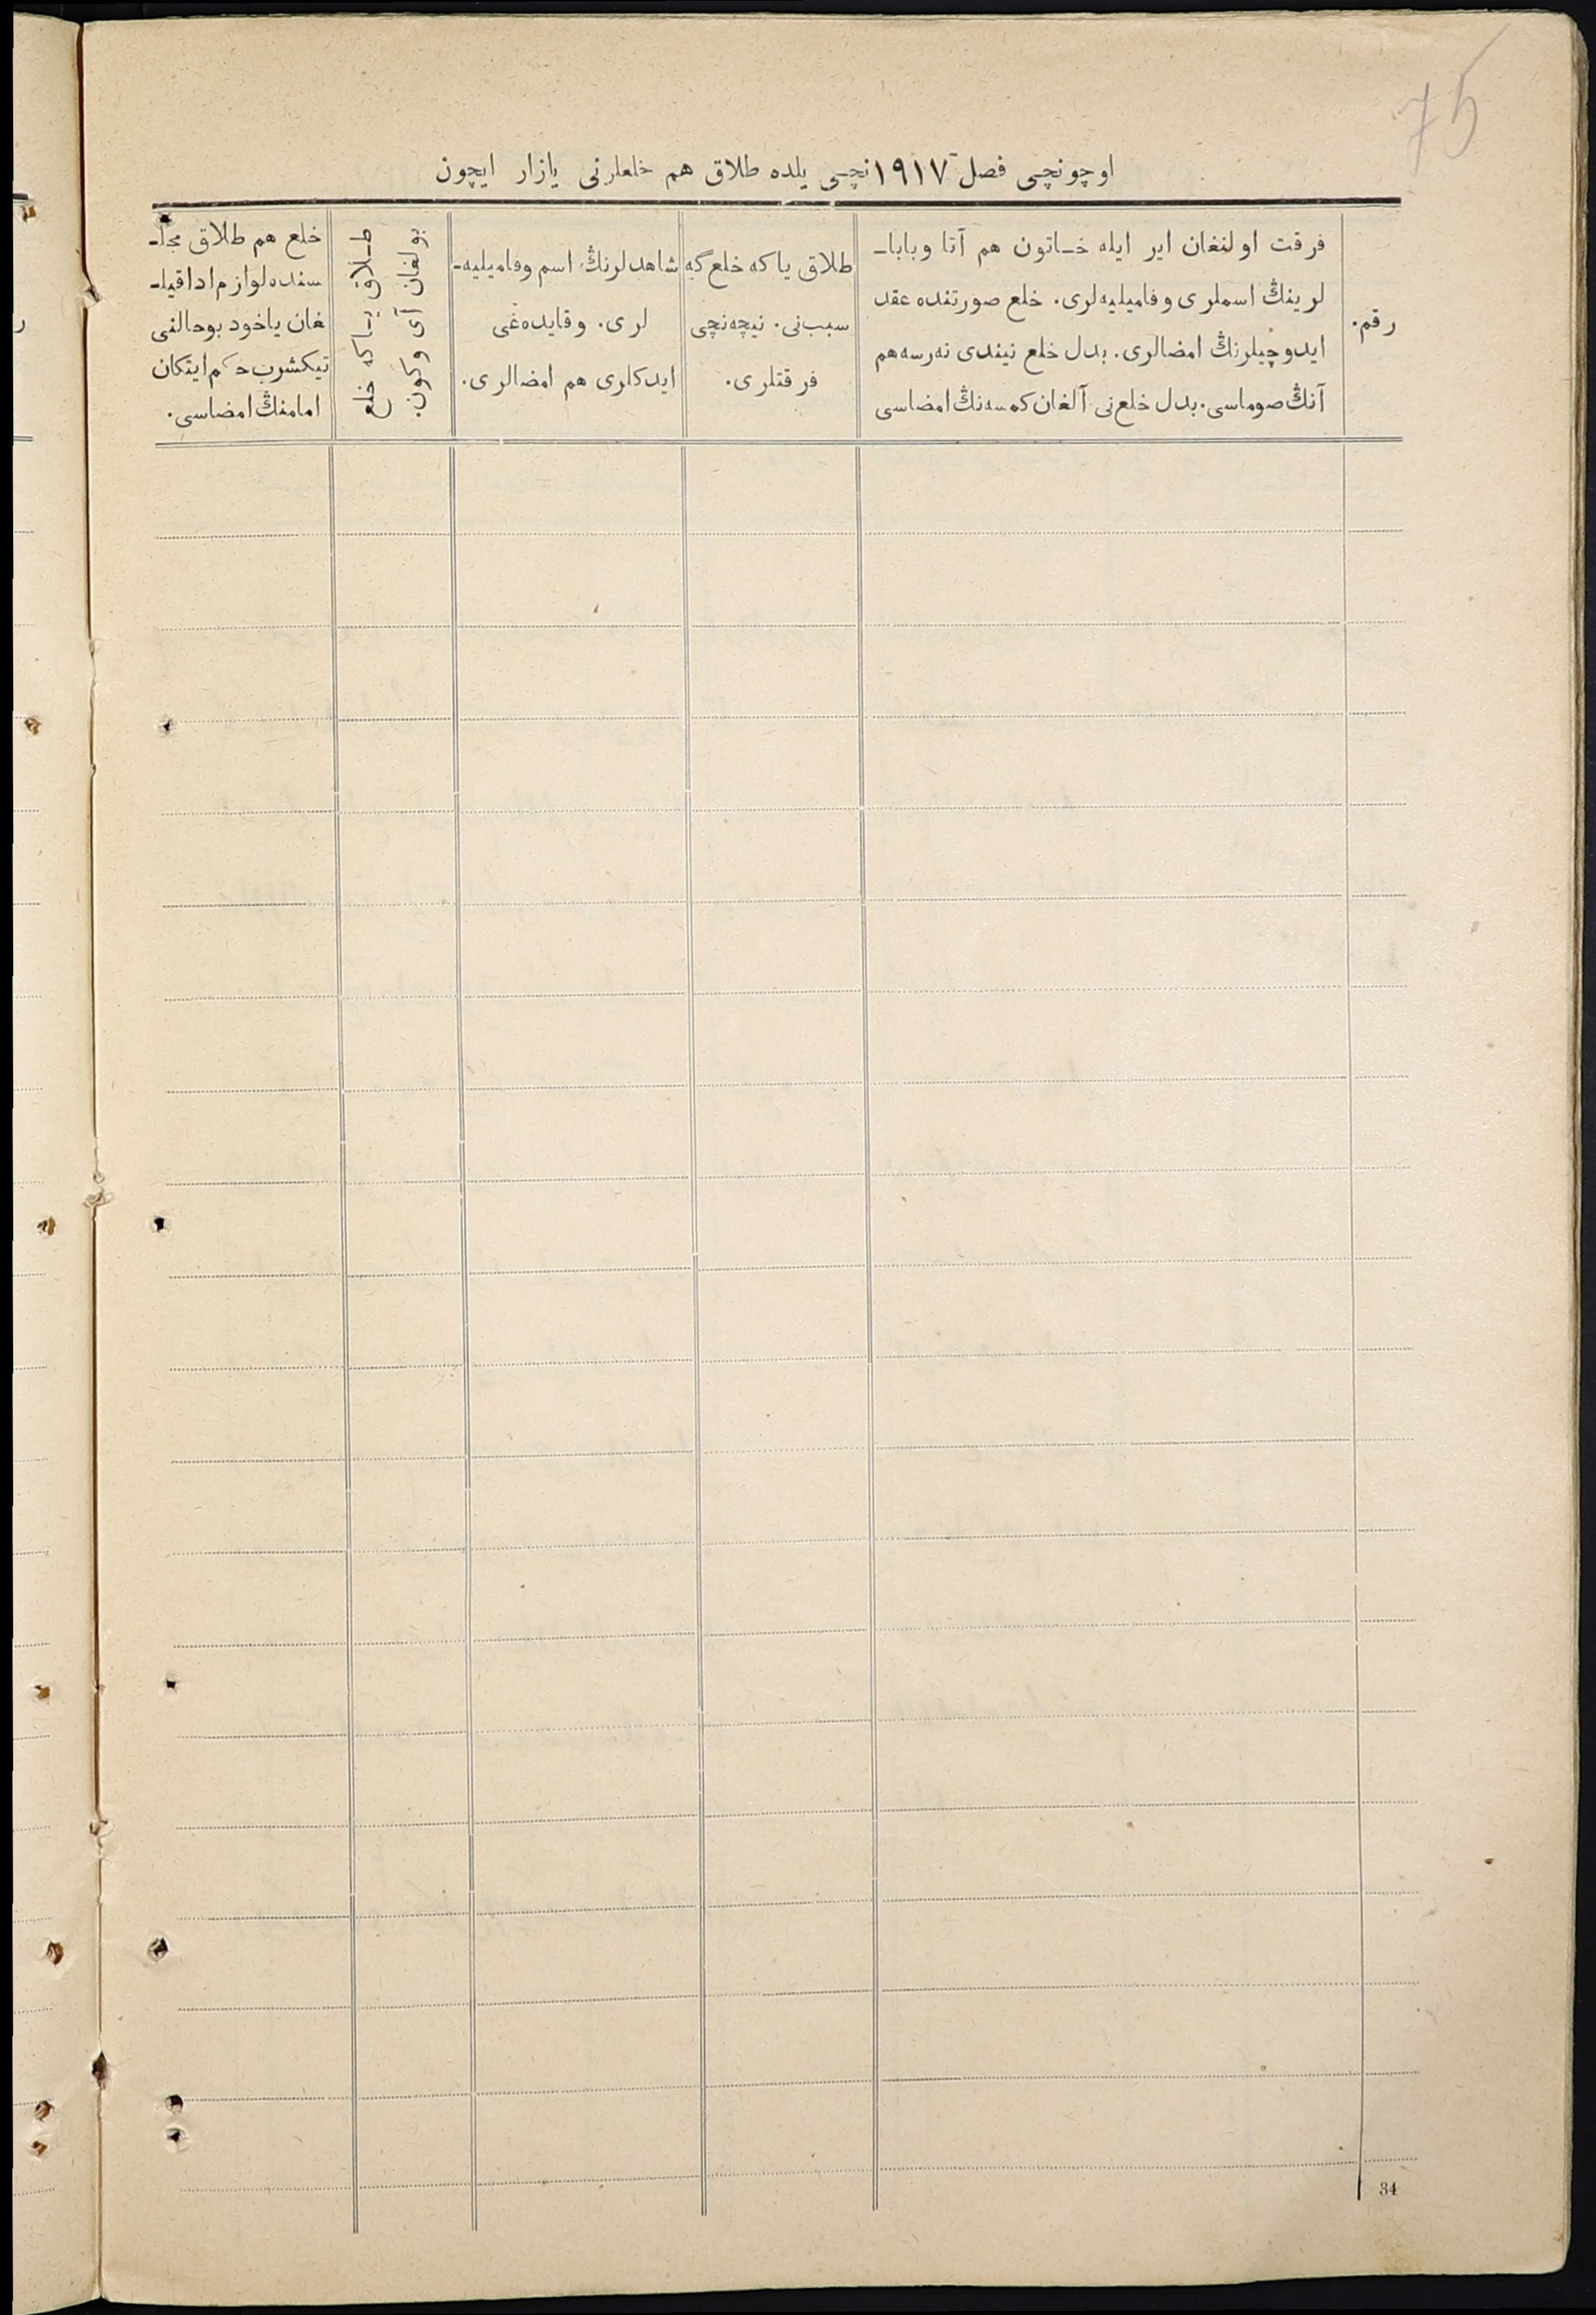 75
اوچونچی فصل ١٩١٧نچی یلده طلاق هم خلعلرنی یازار ایچون
رقم.
فرقت اولنغان ایر ایله خاتون هم آتا وبابا-
لرینڭ اسملری وفامیلیه‌لری. خلع صورتنده عقد
ایدوچیلرنڭ امضالری. بدل خلع نیندی نه‌رسه هم
آنڭ صوماسی. بدل خلع‌نی آلغان کمسه‌نڭ امضاسی
طلاق یاکه خلع گه
سبب‌نی. نیچه‌نچی
فرقتلری.
شاهدلرنڭ اسم وفامیلیه-
لری. وقایده‌غی
ایدکلری هم امضالری.
طلاق یاکه خلع
بولغان آی وکون.
خلع هم طلاق مجل-
سنده لوازم ادا قیل-
غان یاخود بوحالنی
تیکشرب حکم ایتکان
امامنڭ امضاسی.
34